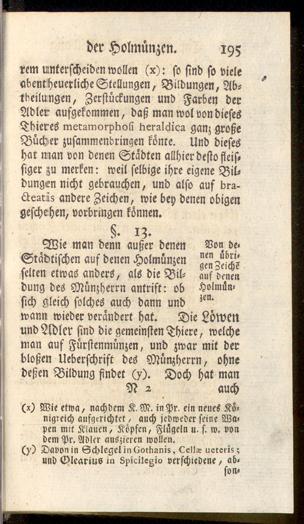 der Holmünzen. 195
rem unterscheiden wollen (x): so sind so viele
abentheuerliche Stellungen, Bildungen, Ab-
theilungen, Zerstückungen und Farben der
Adler aufgekommen, daß man wol von dieses
Thieres metamorphosi heraldica ganz große
Bücher zusammenbringen könte. Und dieses
hat man von denen Städten allhier desto fleis-
siger zu merken: weil selbige ihre eigene Bil-
dungen nicht gebrauchen, und also auf bra-
cteatis andere Zeichen, wie bey denen obigen
geschehen, vorbringen können.
§. 13.
Wie man denn außer denen
Städtischen auf denen Holmünzen
selten etwas anders, als die Bil-
dung des Münzherrn antrift: ob
sich gleich solches auch dann und
wann wieder verändert hat. Die Löwen
Von de-
nen übri-
gen Zeichē
auf denen
Holmün-
zen.
und Adler sind die gemeinsten Thiere, welche
man auf Fürstenmünzen, und zwar mit der
bloßen Ueberschrift des Münzherrn, ohne
deßen Bildung findet (y). Doch hat man
N 2 auch
(x) Wie etwa, nachdem K. M. in Pr. ein neues Kö-
nigreich aufgerichtet, auch jedweder seine Wa-
pen mit Klauen, Köpfen, Flügeln u. s. w. von
dem Pr. Adler auszieren wollen.
(y) Davon in Schlegel in Gothanis, Cellæ ueteris;
und Olearius in Spicilegio verschiedene, ab-
son-